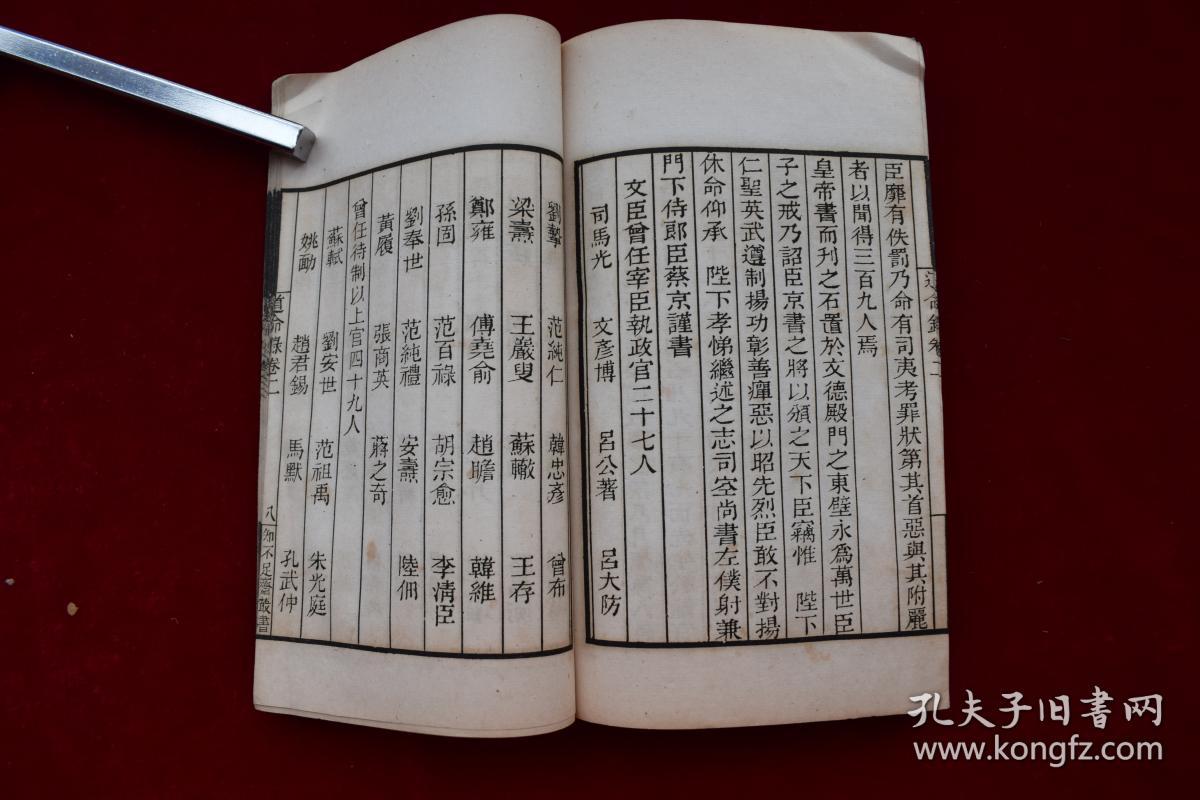 臣靡有佚罰乃命有司夷考罪狀第其首惡與其附麗
者以聞得三百九人焉
皇帝書而刋之石置於文德殿門之東壁永爲萬世臣
子之戒乃詔臣京書之將以頒之天下臣竊惟 陛下
仁聖英武遵制揚功彰善癉惡以昭先烈臣敢不對揚
休命仰承 陛下孝悌繼述之志司空尚書左僕射兼
門下侍郎臣蔡京謹書
文臣曾任宰臣執政官二十七人
司馬光 文彥博 呂公著 呂大防
劉摯 范純仁 韓忠彥 曾布
梁燾 王巖叟 蘇轍 王存
鄭雍 傅堯俞 趙瞻 韓維
孫固 范百祿 胡宗愈 李淸臣
劉奉世 范純禮 安燾 陸佃
黃履 張商英 蔣之奇
曾任待制以上官四十九人
蘇軾 劉安世 范祖禹 朱光庭
姚勔 趙君錫 馬默 孔武仲
道命錄卷二 八 知不足齋叢書
道命錄卷二
孔夫子旧書网
www.kongfz.com